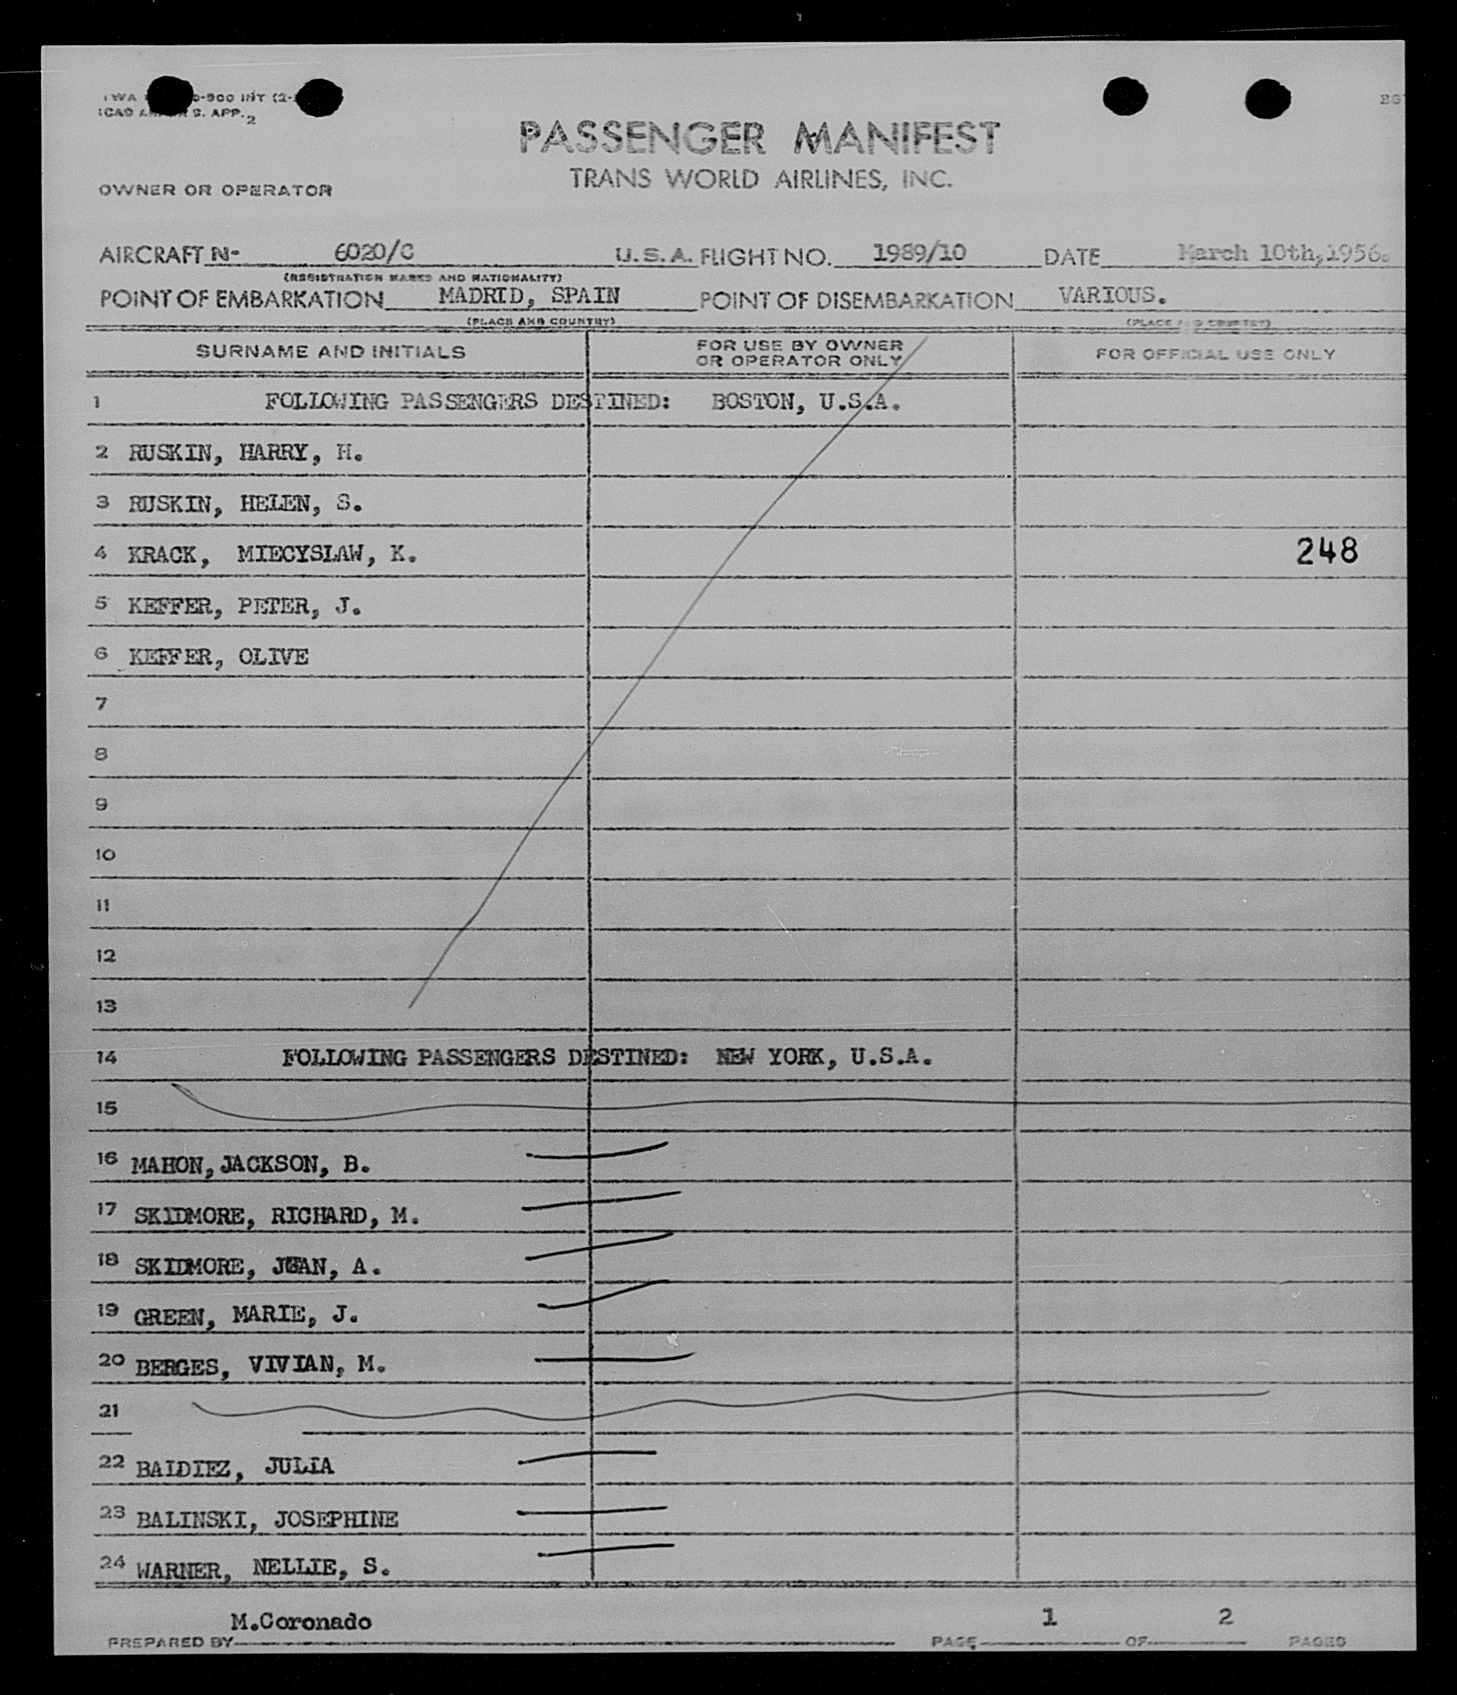 -900 INT (2-
ICAO S. APP. 2
PASSENGER MANIFEST
TRANS WORLD AIRLINES, INC.
OWNER OR OPERATOR
AIRCRAFT Nº 6020/C U.S.A. FLIGHT NO. 1989/10 DATE March 10th, 1956.
(REGISTRATION MARKS AND NATIONALITY)
POINT OF EMBARKATION MADRID, SPAIN POINT OF DISEMBARKATION VARIOUS.
(PLACE AND COUNTRY) (PLACE AND COUNTRY)
SURNAME AND INITIALS FOR USE BY OWNER OR OPERATOR ONLY FOR OFFICIAL USE ONLY
1 FOLLOWING PASSENGERS DESTINED: BOSTON, U.S.A.
2 RUSKIN, HARRY, H.
3 RUSKIN, HELEN, S.
4 KRACK, MIECYSLAW, K. 248
5 KEFFER, PETER, J.
6 KEFFER, OLIVE
7
8
9
10
11
12
13
14 FOLLOWING PASSENGERS DESTINED: NEW YORK, U.S.A.
15
16 MAHON, JACKSON, B.
17 SKIDMORE, RICHARD, M.
18 SKIDMORE, JEAN, A.
19 GREEN, MARIE, J.
20 BERGES, VIVIAN, M.
21
22 BAIDIEZ, JULIA
23 BALINSKI, JOSEPHINE
24 WARNER, NELLIE, S.
M.Coronado 1 2
PREPARED BY PAGE OF PAGES